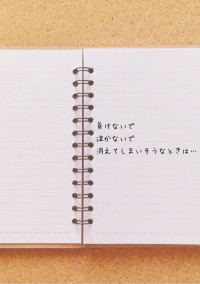 負けないで
泣かないで
消えてしまいそうなときは…